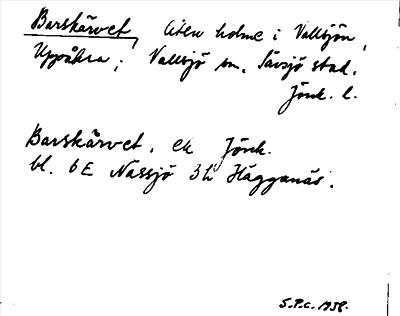 Barskärvet, liten holme i Vallsjön,
Uppåkra; Vallsjö sn, Sävsjö stad.
Jönk. l.
Barskärvet, ek Jönk.
bl. 6E Nässjö 3h Hägganäs.
S.P.C. 1958.